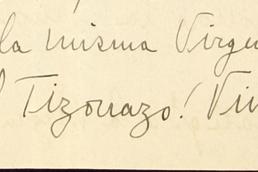 la misma Virge
Tizonazo! Vi